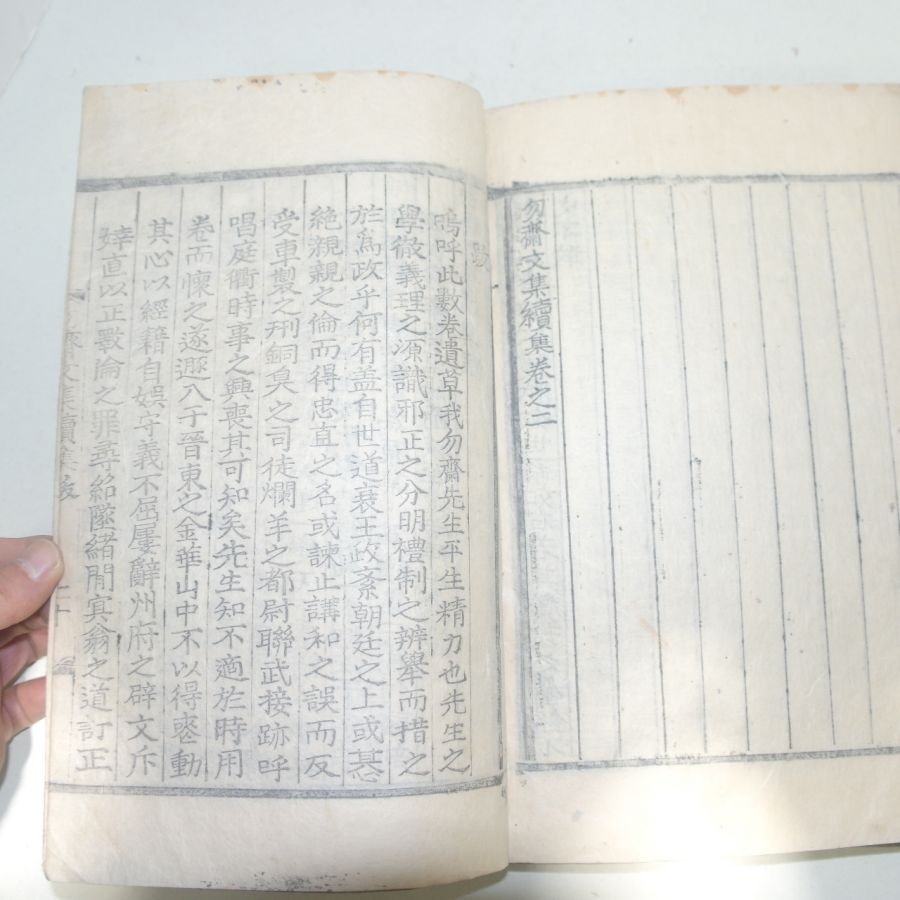 勿齋文集續集卷之二
跋
嗚呼此數卷遺草我勿齋先生平生精力也先生之
學徹義理之源識邪正之分明禮制之辨擧而措之
於爲政乎何有盖自世道衰王政紊朝廷之上或甚
絶親親之倫而得忠直之名或諫止講和之誤而反
受車製之刑銅臭之司徒爛羊之都尉聯武接跡呼
唱庭衢時事之興喪其可知矣先生知不適於時用
卷而懷之遂遯入于晉東之金華山中不以得喪動
其心以經籍自娛守義不屈屢辭州府之辟文斥
婞直以正戰論之罪尋紹墜緖閒寅翁之道訂正
齋文集續集 跋 二十